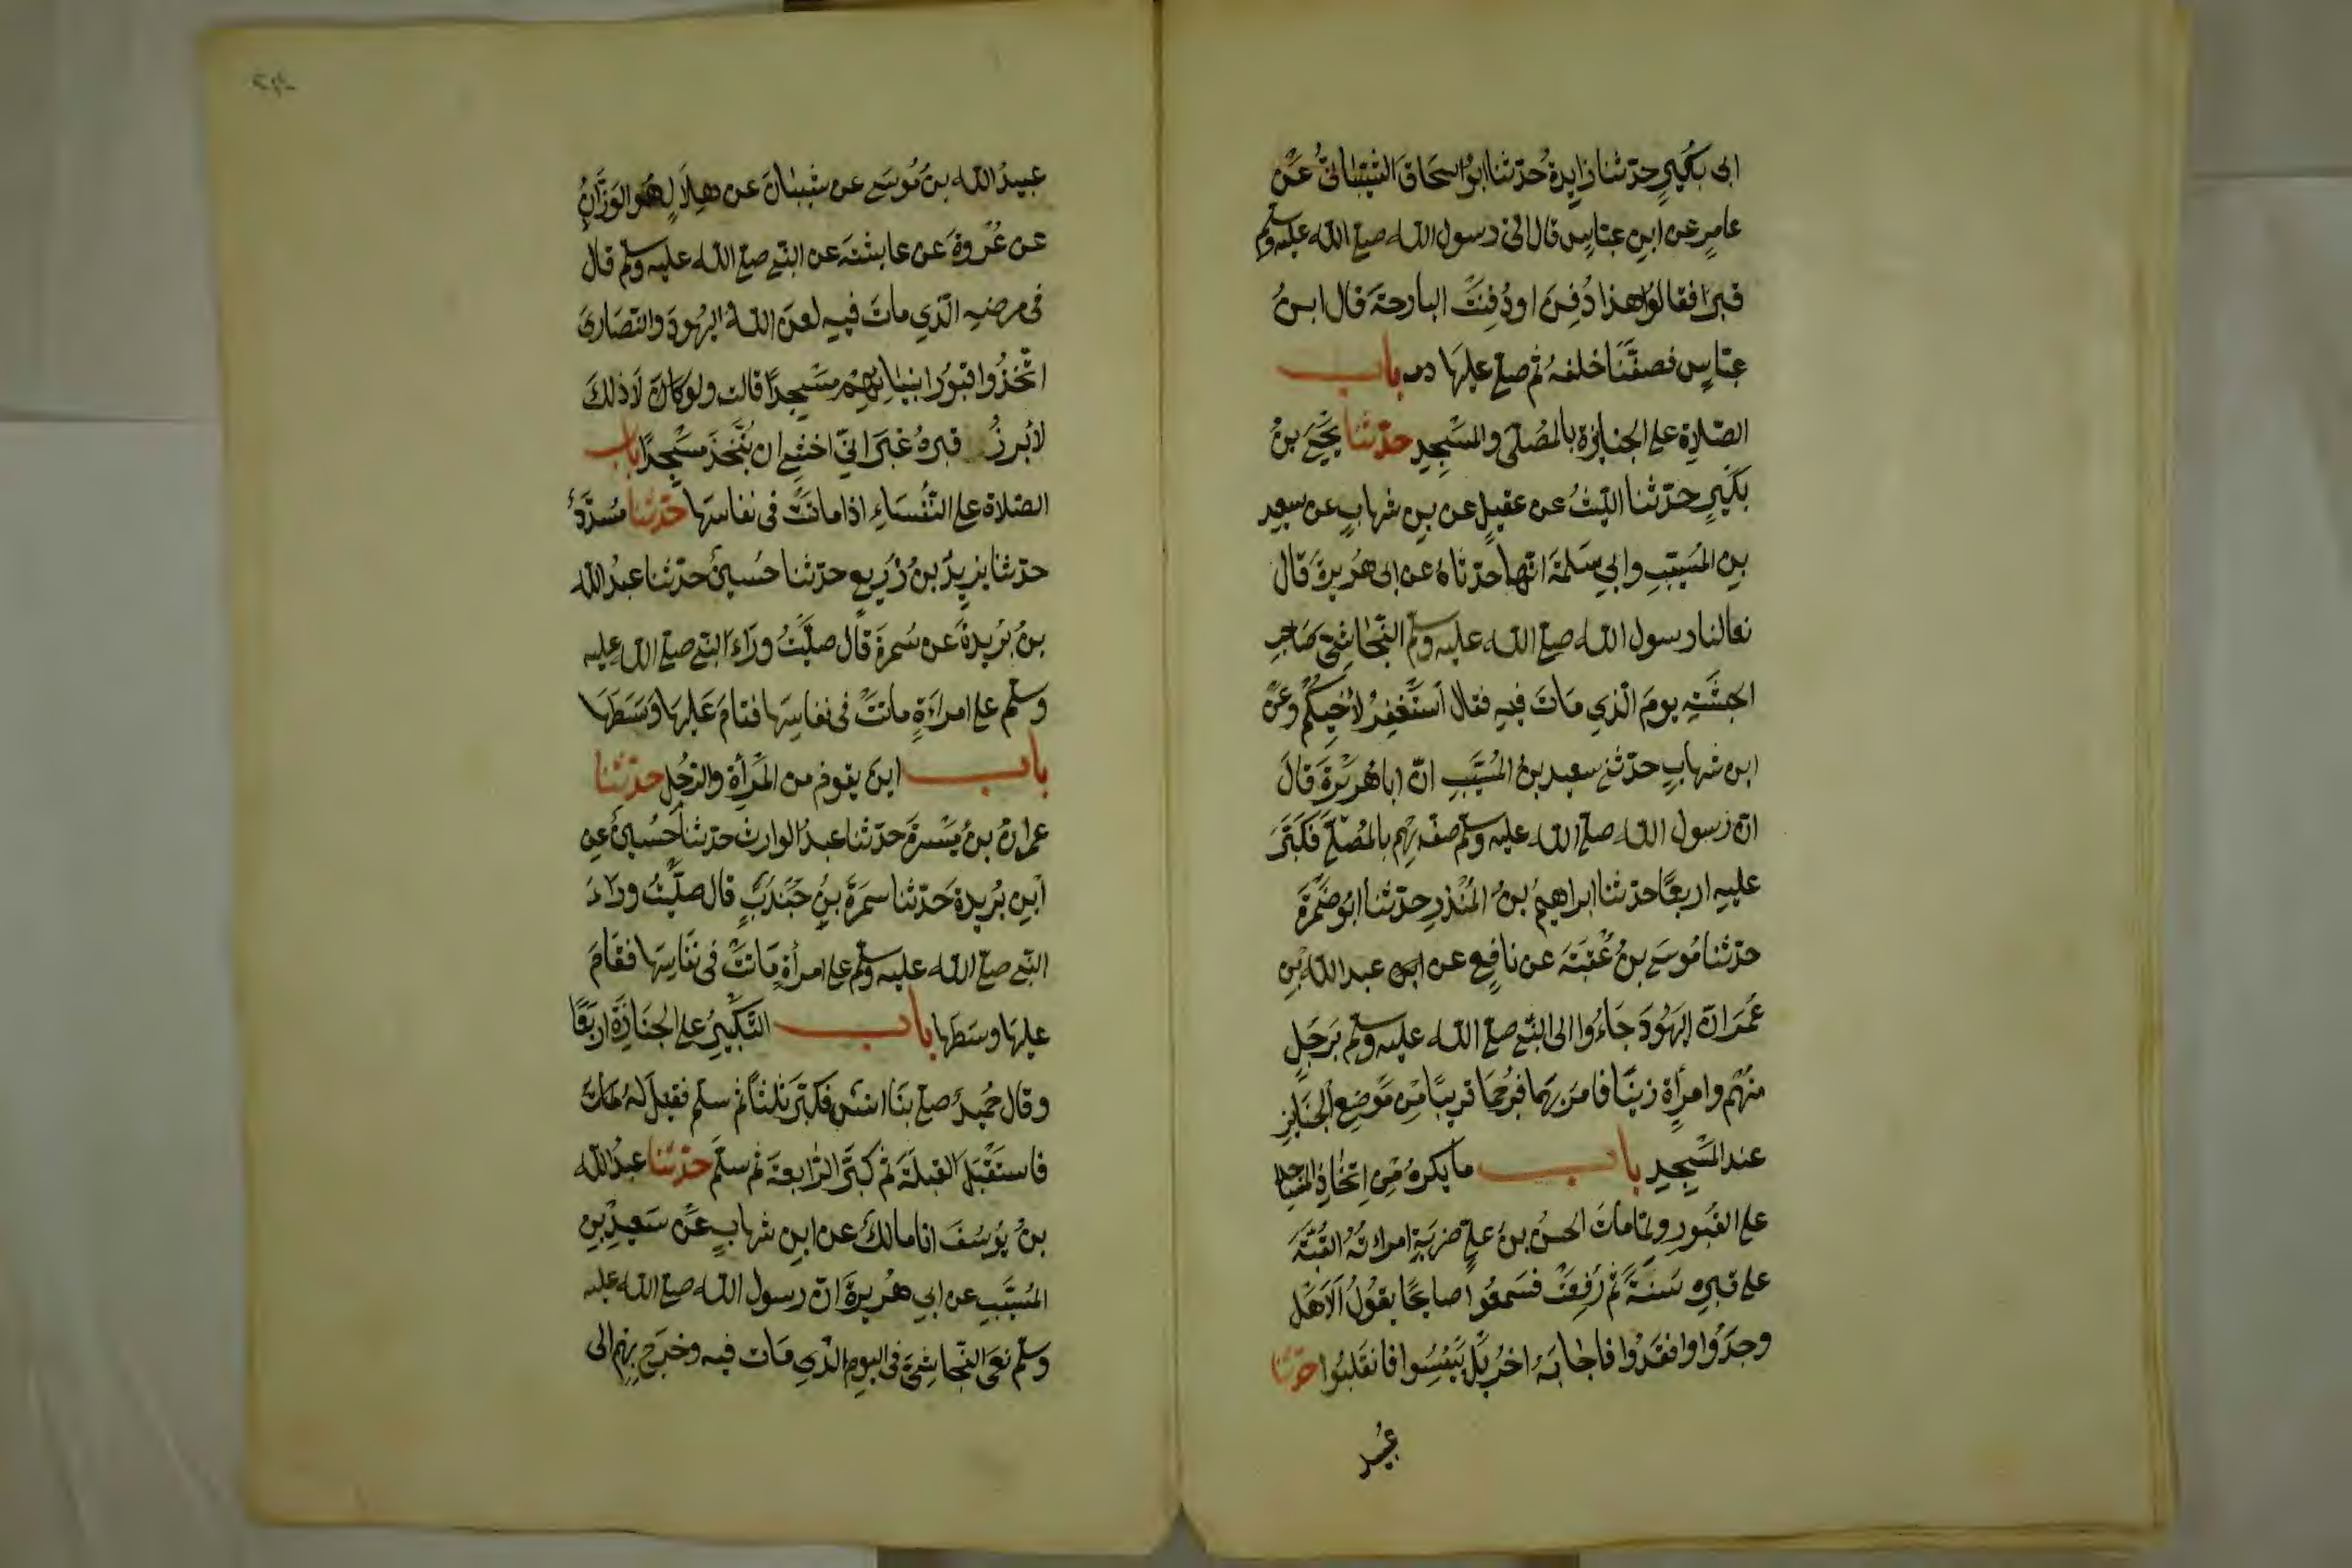 ابى بُكَيرٍ حدّثنا زايدةُ حدّثنا ابوُ اسحَاقَ الشّيبانىُّ عَنْ
عامرٍ عن ابنِ عبّاسٍ قال اتى رسول الله صلى الله عليه وسلم
قبرًا فقالوُا هذا دُفِنَ اودُفِنَتْ البارحةَ قال ابنُ
عبّاسٍ فصفَّنَا خلفهُ ثم صلى عليهَا باب
الصّلاةِ على الجنايزِ بالمُصَلّى والمَسْجِدِ حدّثنا يَحْيَى بنُ
بُكَيرٍ حدّثنا الليثُ عن عقيلٍ عن بنِ شهابٍ عن سعيدِ
بنِ المُسَيّبِ وابي سَلمَةَ انّهما حدّثاهُ عن ابى هُرَيرةَ قال
نعا لنا رسول الله صلى الله عليه وسلم النّجاشِىَّ صَاحِبَ
الحبشَةِ يومَ الّذي مَاتَ فيهِ فقال اسْتَغْفِرُوا لأخيكُم وعَنِ
ابن شهابٍ حدّثنى سعيد بنُ المُسَيَّبِ انّ اباهُرَيْرَةَ قالَ
انّ رسول الله صلى الله عليه وسلم صفّ بِهِم بالمُصَلَّى فَكَبَّرَ
عليهِ اربعًا حدّثنا ابراهيمُ بنُ المُنْذرِ حدّثنا ابُو ضَمْرَةَ
حدّثنا مُوسَى بنُ عُقْبَةَ عن نافِعٍ عن عبد الله بنِ
عُمَرَ انّ اليَهُودَ جَاءُوا الى النّبى صلى الله عليه وسلم بِرَجُلٍ
مِنْهُم وامرأةٍ زنيَا فامَرَ بهما فرُجِمَا قريبًا مِن مَوْضِعِ الجَنَايزِ
عند المَسْجِدِ باب ما يكرهُ مِن اِتّخاذِ المسَاجد
على القُبوُرِ ولمّا ماتَ الحسنُ بنُ علىٍّ ضربَتِ امراتُهُ القُبَّةَ
على قبرِهِ سَنَةً ثمّ رُفِعَتْ فسَمِعُوا صايحًا يقوُلُ اَلاَ هَل
وجدُوا وافقدُوا فاجابَهُ اخرُ بَل يَئِسُوا فانقلبُوا حدّثنا
عُبيد
عبيدُ الله بنُ مُوسَى عن شيبَانَ عن هِلَالٍ هُوَ الوَزَّانِ
عن عُرْوةَ عن عايشةَ عن النّبى صلى الله عليه وسلم قال
فى مرضِهِ الّذي ماتَ فيهِ لعنَ اللهُ اليهُودَ والنّصَارَى
اتّخذُوا قبُورَ انبيايِهِمْ مسْجِدًا قالت ولوكان لاَ ذلكَ
لأبرزُ قبرهُ غَيرَ انّي اخشَى ان يُتّخَذَ مسْجِدًا باب
الصّلاة على النّفُسَاءِ اذا ماتَتْ فى نفاسِهَا حدّثنا مُسَدَّدٌ
حدّثنا يزيدُ بنُ زُرَيعٍ حدّثنا حُسينٌ حدّثنا عبدُ الله
بنُ بُريدةَ عن سُمرةَ قال صلّيْتُ ورَاءَ النّبى صلى الله عليه
وسلم على امراءَةٍ ماتتْ فى نفاسِهَا فقامَ عَليهَا وَسَطَهَا
باب اينَ يقوم من المَرْأةِ والرّجُلِ حدّثنا
عمرانُ بنُ مَيْسرةَ حدّثنا عبدُ الوارثِ حدّثنا حُسينٌ عنِ
ابنِ بُريدةَ حَدّثنا سمُرَةَ بنِ جُنْدَبٍ قال صلّيْتُ ورَاءَ
النّبى صلى الله عليه وسلم على امرأةٍ مَاتتْ فى نفَاسِهَا فقَامَ
عليهَا وسَطهَا باب التّكْبِيرُ على الجَنَازَةِ اربَعًا
وقال حُميدٌ صلى بنَا انسٌ فكبّرَ ثلثًا ثم سلم فقيلَ لهُ
فاستَقْبَلَ القبلَةَ ثم كبّرَ الرّابعةَ ثم سلّمَ حدّثنا عبدُ الله
بنُ يُوسُفَ انا مالكٌ عن ابنِ شهابٍ عَن سَعيدِ بنِ
المُسَيَّبِ عن ابي هُرَيرةَ انّ رسول الله صلى الله عليه
وسلم نعَى النّجاشِىَّ فى اليومِ الّذي مَات فيه وخرَجَ بِهِم الى